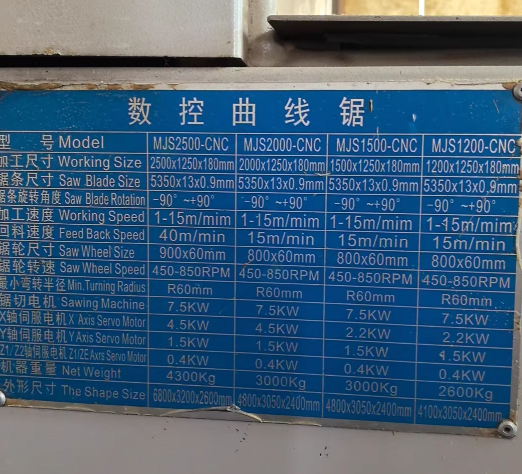 数控曲线锯
型 号 Model MJS2500-CNC MJS2000-CNC MJS1500-CNC MJS1200-CNC
加工尺寸 Working Size 2500x1250x180mm 2000x1250x180mm 1500x1250x180mm 1200x1250x180mm
锯条尺寸 Saw Blade Size 5350x13x0.9mm 5350x13x0.9mm 5350x13x0.9mm 5350x13x0.9mm
锯条旋转角度 Saw Blade Rotation -90° ~+90° -90° ~+90° -90° ~+90° -90° ~+90°
加工速度 Working Speed 1-15m/mim 1-15m/mim 1-15m/mim 1-15m/mim
回料速度 Feed Back Speed 40m/min 15m/min 15m/min 15m/min
锯轮尺寸 Saw Wheel Size 900x60mm 800x60mm 800x60mm 800x60mm
锯轮转速 Saw Wheel Speed 450-850RPM 450-850RPM 450-850RPM 450-850RPM
最小弯转半径 Min.Turning Radius R60mm R60mm R60mm R60mm
锯切电机 Sawing Machine 7.5KW 7.5KW 7.5KW 7.5KW
X轴伺服电机 X Axis Servo Motor 4.5KW 4.5KW 2.2KW 2.2KW
Y轴伺服电机 Y Axis Servo Motor 1.5KW 1.5KW 1.5KW 1.5KW
Z1/Z2轴伺服电机 Z1/ZE Axis Servo Motor 0.4KW 0.4KW 0.4KW 0.4KW
机器重量 Net Weight 4300Kg 3000Kg 3000Kg 2600Kg
外形尺寸 The Shape Size 6800x3200x2600mm 4800x3050x2400mm 4800x3050x2400mm 4100x3050x2400mm